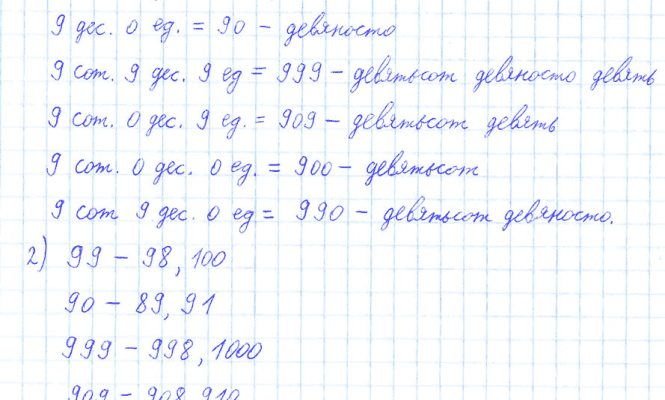 9 дес. 0 ед. = 90 – девяносто
9 сот. 9 дес. 9 ед = 999 – девятьсот девяносто девять
9 сот. 0 дес. 9 ед. = 909 – девятьсот девять
9 сот. 0 дес. 0 ед. = 900 – девятьсот
9 сот 9 дес. 0 ед = 990 – девятьсот девяносто.
2) 99 – 98, 100
90 – 89, 91
999 – 998, 1000
909 – 908, 910